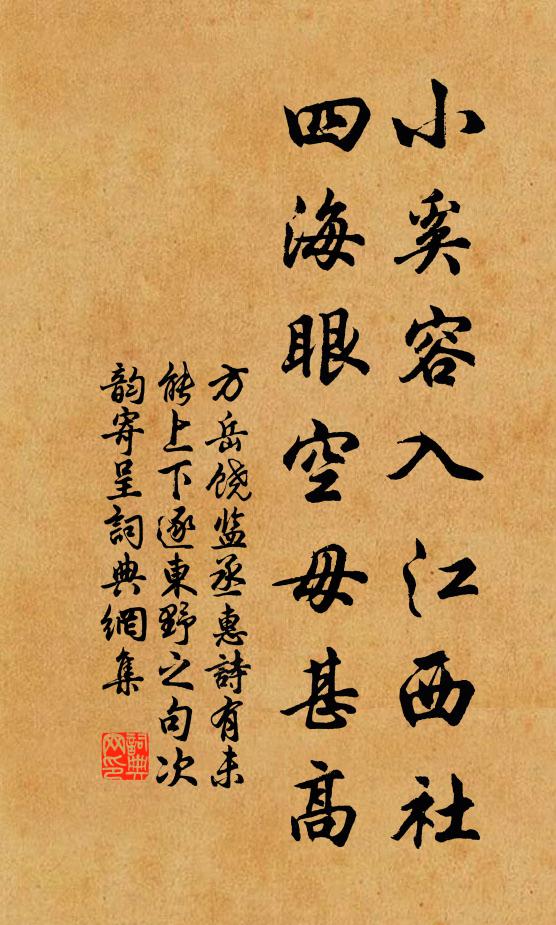 小奚容入江西社
四海眼空毋甚高
方岳饶监丞惠詩有未
能上下逐東野之句次
韵寄呈詞典網集
詞典
网印